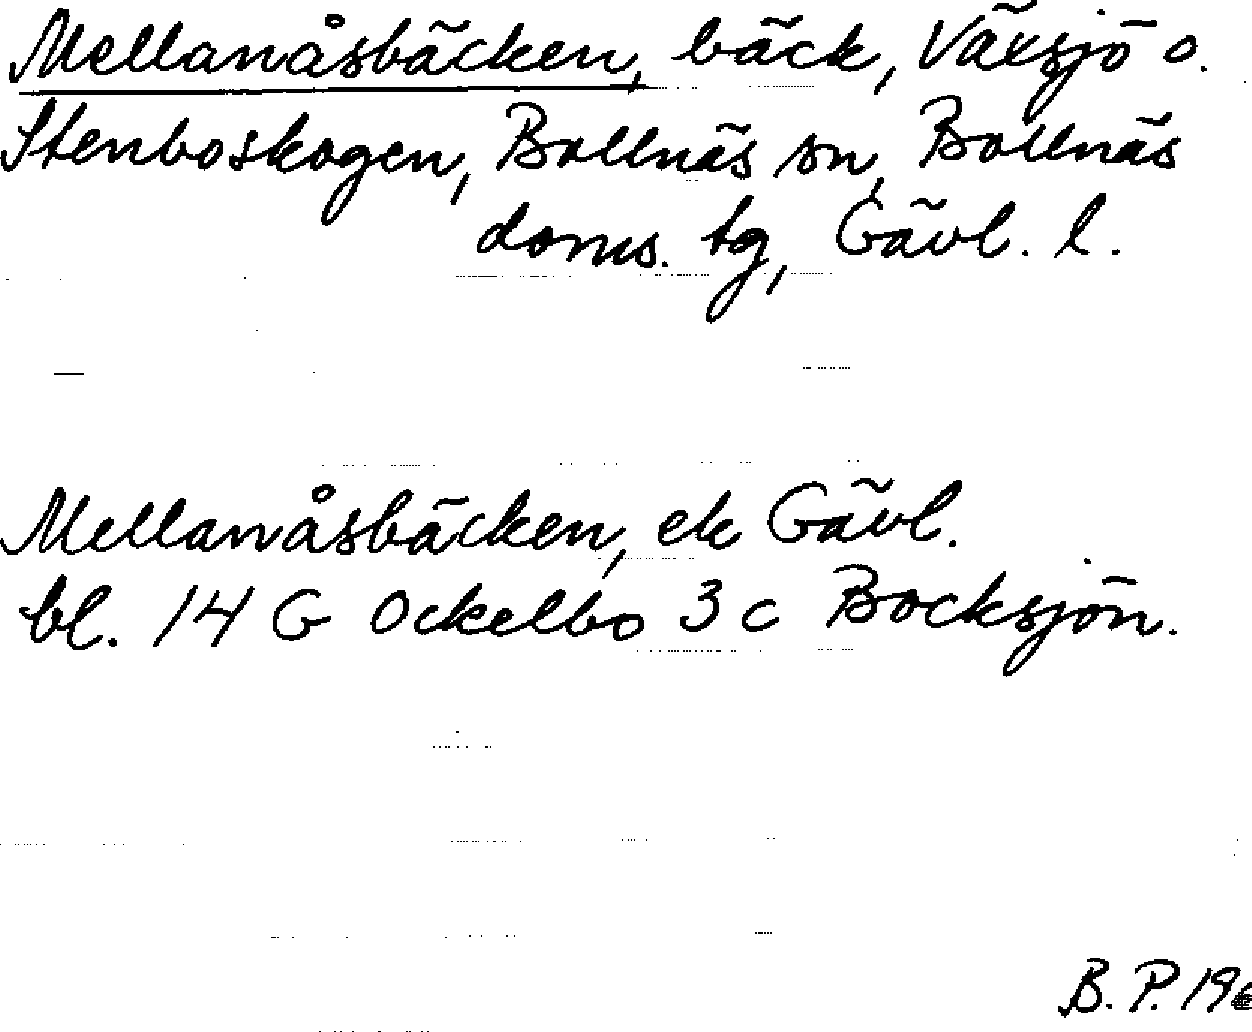 Mellanåsbäcken, bäck, Växsjö o.
Stenboskogen, Bollnäs sn, Bollnäs
doms. tg, Gävl. l.
Mellanåsbäcken, ek Gävl.
bl. 14 G Ockelbo 3 c Bocksjön.
B. P. 19